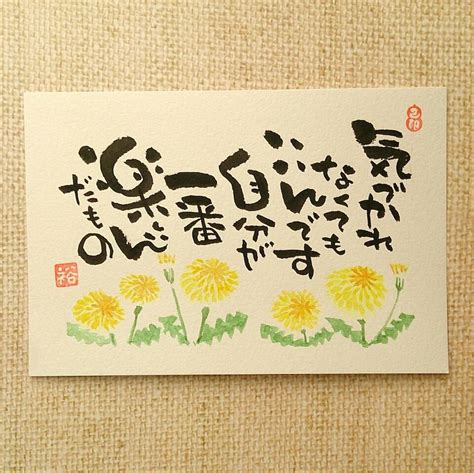 気づかれ
なくても
いいんです
自分が
一番
楽しん
だもの
裕